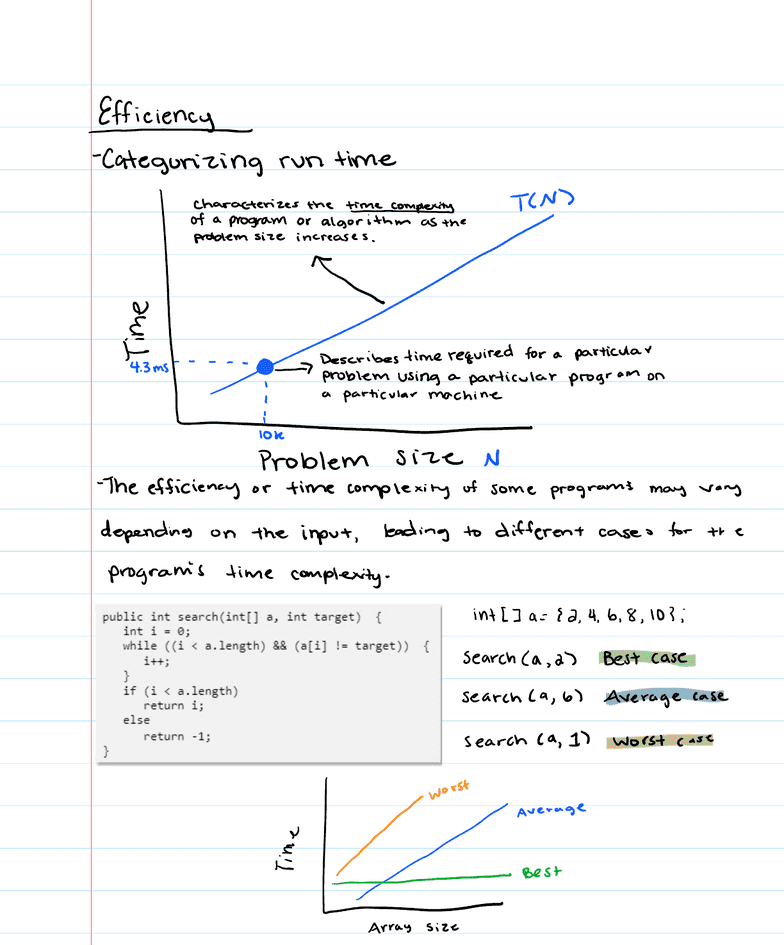 Efficiency
-Categorizing run time
Characterizes the time complexity
of a program or algorithm as the
problem size increases.
T(N)
Time
4.3ms
Describes time required for a particular
problem using a particular program on
a particular machine
10k
Problem size N
-The efficiency or time complexity of some programs may vary
depending on the input, leading to different cases for the
program's time complexity.
public int search(int[] a, int target) {
int i = 0;
while ((i < a.length) && (a[i] != target)) {
i++;
}
if (i < a.length)
return i;
else
return -1;
}
int[] a = {2, 4, 6, 8, 10};
search(a,2) Best case
search(a,6) Average case
search(a,1) Worst case
Worst
Average
Best
Time
Array size